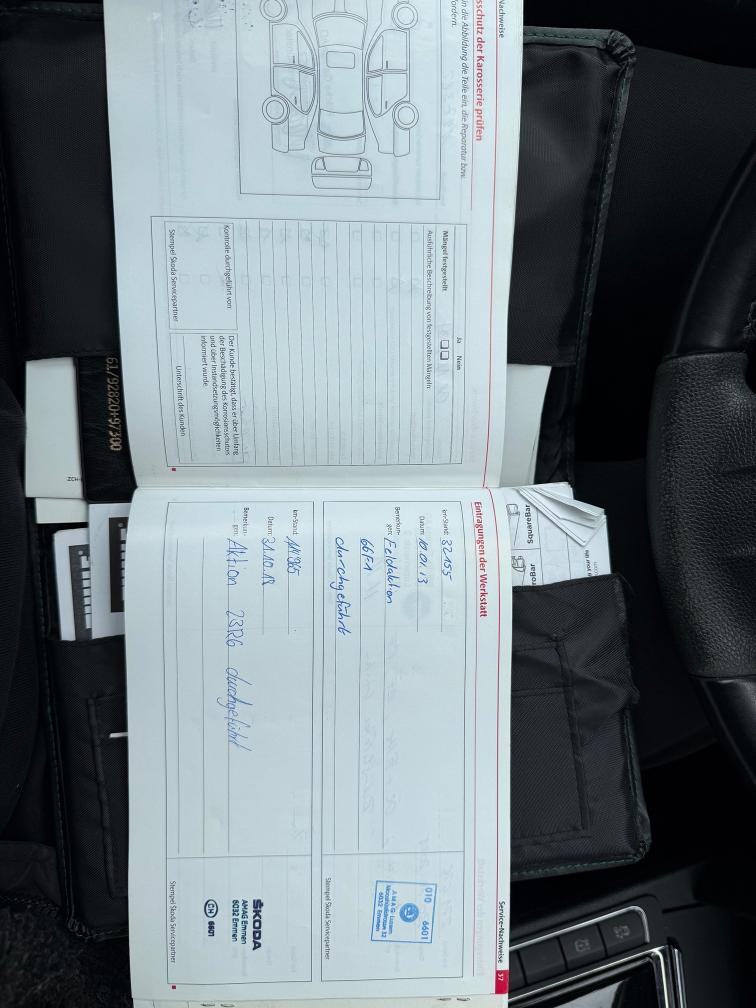 Nachweise
sschutz der Karosserie prüfen
in die Abbildung die Teile ein, die Reparatur bzw.
fordern.
Ja Nein
Mängel festgestellt
Ausführliche Beschreibung von festgestellten Mängeln:
Kontrolle durchgeführt von:
Der Kunde bestätigt, dass er über Umfang
der Beschädigung des Korrosionsschutzes
und über Instandsetzungsmöglichkeiten
informiert wurde.
Stempel Škoda Servicepartner
Unterschrift des Kunden
Service-Nachweise 37
Eintragungen der Werkstatt
km-Stand: 32155
Datum: 10.01.13
Bemerkun-
gen: Feldaktion
66F1
durchgeführt
010 6601
AMAG Luzern
6032 Emmen
Stempel Škoda Servicepartner
km-Stand:
Datum: 31.10.18
Bemerkun-
gen: Aktion 23R6 durchgeführt
ŠKODA
AMAG Emmen
6032 Emmen
CH 6601
Stempel Škoda Servicepartner
61/92820+97300
ZCH-
SquareBar
roBar